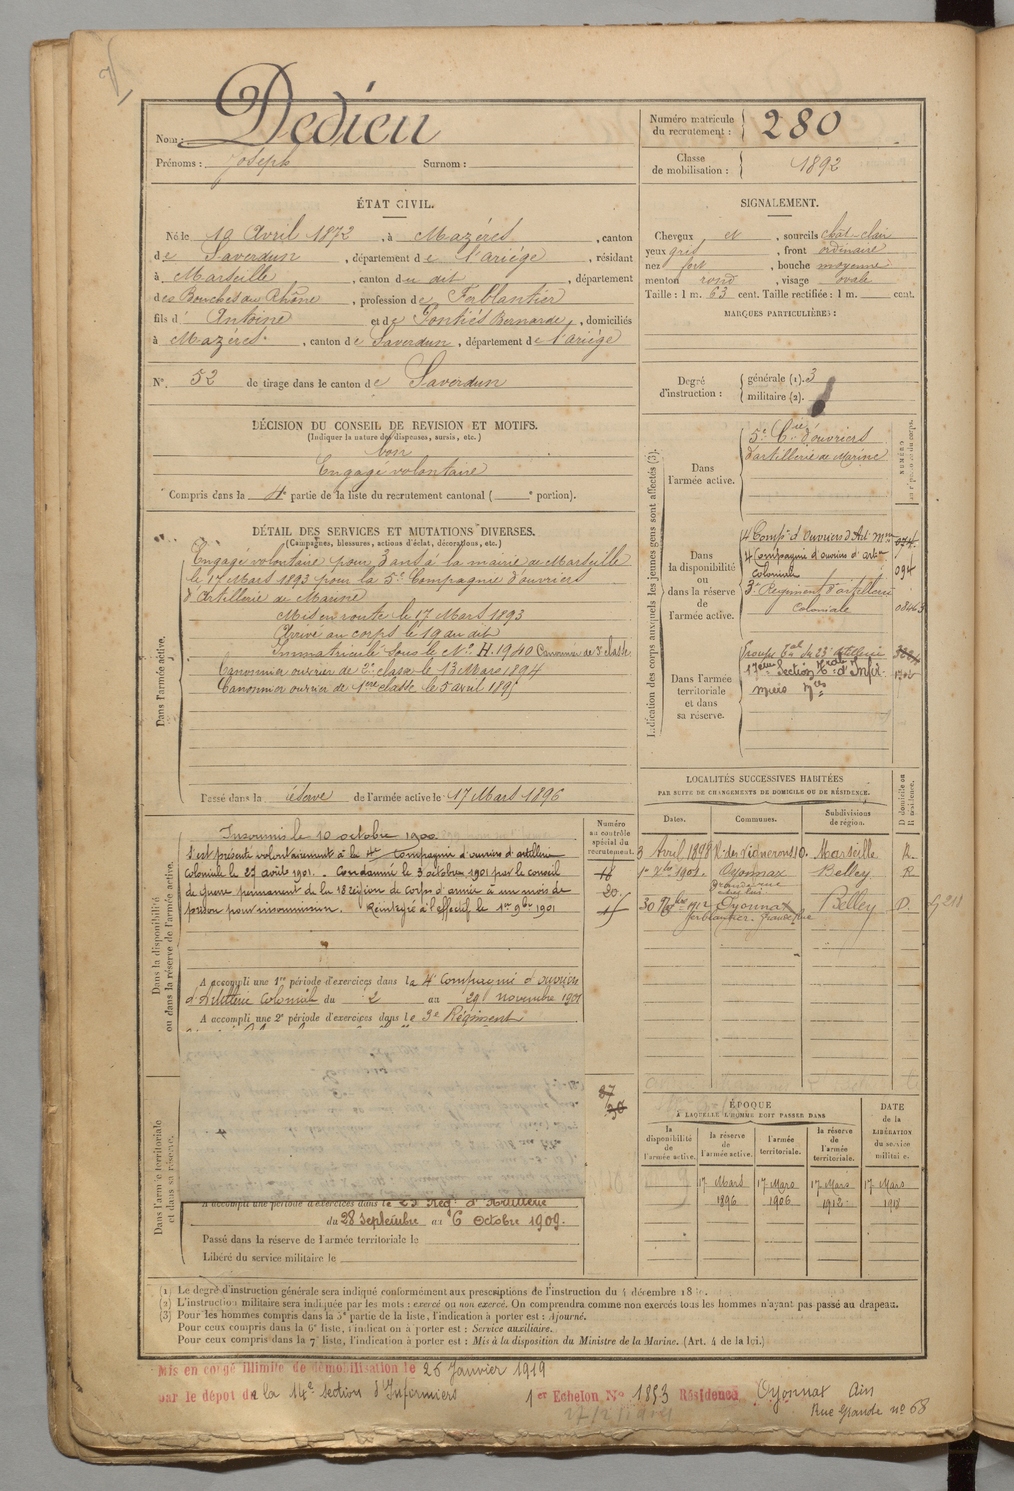 Nom : Dedieu
Prénoms : Joseph Surnom :
Numéro matricule du recrutement : 280
Classe de mobilisation : 1892
ÉTAT CIVIL.
Né le 19 Avril 1872, à Mazéres, canton
de Saverdun, département de l'ariége, résidant
à Marseille, canton du dit, département
des Bouches du Rhône, profession de Ferblantier
fils d' Antoine et de Pontiés Bernarde, domiciliés
à Mazéres, canton de Saverdun, département de l'ariége
N° 52 de tirage dans le canton de Saverdun
SIGNALEMENT.
Cheveux et, sourcils chât clair
yeux gris, front ordinaire
nez fort, bouche moyenne
menton rond, visage ovale
Taille : 1 m. 63 cent. Taille rectifiée : 1 m. cent.
MARQUES PARTICULIÈRES :
Degré d'instruction : générale (1). 3
militaire (2).
DÉCISION DU CONSEIL DE REVISION ET MOTIFS.
(Indiquer la nature des dispenses, sursis, etc.)
bon
Engagé volontaire
Compris dans la 4e partie de la liste du recrutement cantonal ( e portion).
DÉTAIL DES SERVICES ET MUTATIONS DIVERSES.
(Campagnes, blessures, actions d'éclat, décorations, etc.)
Dans l'armée active.
Engagé volontaire pour 3 ans à la mairie de Marseille
le 17 Mars 1893 pour la 5e Compagnie d'ouvriers
d'Artillerie de Marine
Mis en route le 17 Mars 1893
Arrivé au corps le 19 du dit
Immatriculé sous le N° H. 1940 Canonnier de 2e classe
Canonnier ouvrier de 2e classe le 13 Mars 1894
Canonnier ouvrier de 1ère classe le 5 avril 1895
Passé dans la réserve de l'armée active le 17 Mars 1896
Indication des corps auxquels les jeunes gens sont affectés (3).
Dans l'armée active.
5e Cie d'ouvriers
d'artillerie de Marine
Dans la disponibilité ou dans la réserve de l'armée active.
4 Compie d'Ouvriers d'Art. Mne
4 Compagnie d'ouvriers d'artie
Coloniale 094
3e Régiment d'artillerie
Coloniale
Dans l'armée territoriale et dans sa réserve.
Groupe tal du 23e artillerie
17ème Section tale d'Infir-
miers
LOCALITÉS SUCCESSIVES HABITÉES
PAR SUITE DE CHANGEMENTS DE DOMICILE OU DE RÉSIDENCE.
Dates. Communes. Subdivisions de région. D domicile ou R résidence.
3 Avril 1898 R. des Vignerons 10. Marseille R.
1er Xbre 1901. Oyonnax Belley R
Grande rue
30 9bre 1912 Oyonnax Belley D.
ferblantier. Grande Rue
G 211
Dans la disponibilité ou dans la réserve de l'armée active.
Numéro au contrôle spécial du recrutement.
Insoumis le 10 octobre 1900
S'est présenté volontairement à la 4e Compagnie d'ouvriers d'artillerie
Coloniale le 27 août 1901. Condamné le 3 octobre 1901 par le conseil
de guerre permanent de la 18 région de Corps d'armée à un mois de
prison pour insoumission. Réintégré à l'effectif le 1er 9bre 1901
20
A accompli une 1re période d'exercices dans la 4e Compagnie d'ouvriers
d'Artillerie Coloniale du 2 au 29 novembre 1901
A accompli une 2e période d'exercices dans le 3e Régiment
Dans l'armée territoriale et dans sa réserve.
A accompli une période d'exercices dans le 23 Régt d'Artillerie
du 28 Septembre au 6 Octobre 1909.
Passé dans la réserve de l'armée territoriale le
Libéré du service militaire le
ÉPOQUE
À LAQUELLE L'HOMME DOIT PASSER DANS
la disponibilité de l'armée active. la réserve de l'armée active. l'armée territoriale. la réserve de l'armée territoriale. DATE de la LIBÉRATION du service militaire.
17 Mars 1896 17 Mars 1906 17 Mars 1912 17 Mars 1918
(1) Le degré d'instruction générale sera indiqué conformément aux prescriptions de l'instruction du 4 décembre 18
(2) L'instruction militaire sera indiquée par les mots : exercé ou non exercé. On comprendra comme non exercés tous les hommes n'ayant pas passé au drapeau.
(3) Pour les hommes compris dans la 5e partie de la liste, l'indication à porter est : Ajourné.
Pour ceux compris dans la 6e liste, l'indication à porter est : Service auxiliaire.
Pour ceux compris dans la 7e liste, l'indication à porter est : Mis à la disposition du Ministre de la Marine. (Art. 4 de la loi.)
Mis en congé illimité de démobilisation le 26 Janvier 1919
par le dépôt de la 14e section d'Infirmiers 1er Echelon N° 1853 Résidence Oyonnax Ain
Rue Grande n° 68